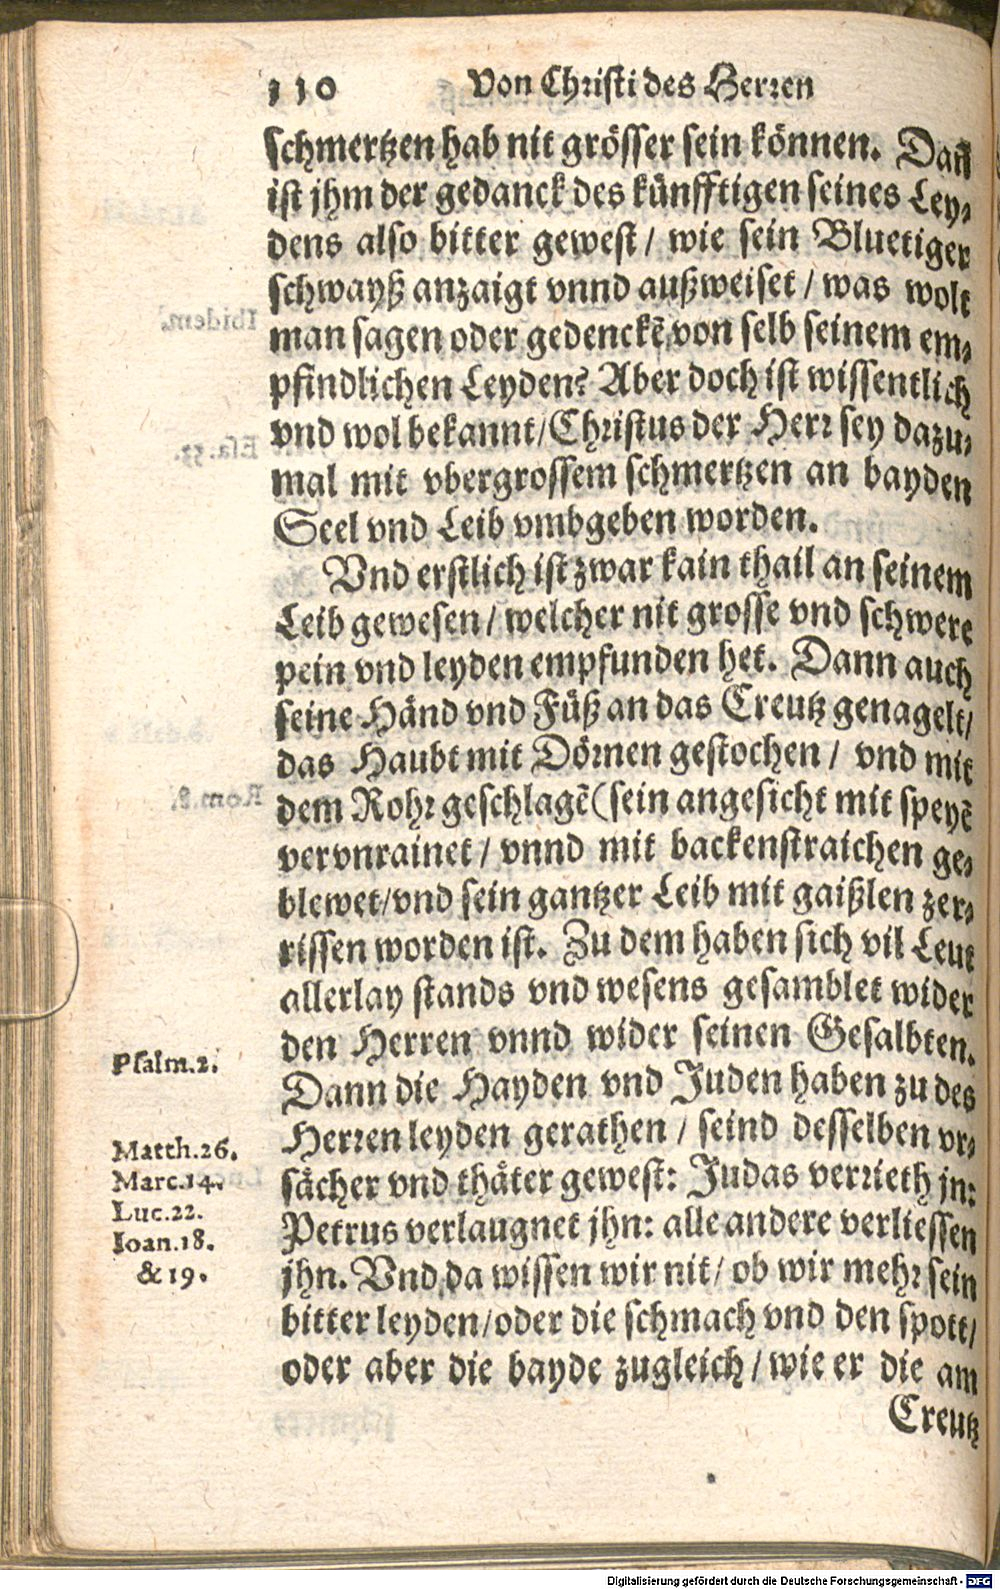 110 Von Christi des Herren
schmertzen hab nit grösser sein können. Dañ
ist jhm der gedanck des künfftigen seines Ley-
dens also bitter gewest / wie sein Bluetiger
schwayß anzaigt vnnd außweiset / was wolt
man sagen oder gedenckē von selb seinem em-
pfindlichen Leyden? Aber doch ist wissentlich
vnd wol bekannt / Christus der Herr sey dazu-
mal mit vbergrossem schmertzen an bayden
Seel vnd Leib vmbgeben worden.
Vnd erstlich ist zwar kain thail an seinem
Leib gewesen / welcher nit grosse vnd schwere
pein vnd leyden empfunden het. Dann auch
seine Händ vnd Füß an das Creutz genagelt /
das Haubt mit Dörnen gestochen / vnd mit
dem Rohr geschlagē (sein angesicht mit speyē
vervnrainet / vnnd mit backenstraichen ge-
blewet / vnd sein gantzer Leib mit gaißlen zer-
rissen worden ist. Zu dem haben sich vil Leut
allerlay stands vnd wesens gesamblet wider
den Herren vnnd wider seinen Gesalbten.
Psalm.2.
Dann die Hayden vnd Juden haben zu des
Herren leyden gerathen / seind desselben vr-
sächer vnd thäter gewest: Judas verrieth jn:
Petrus verlaugnet jhn: alle andere verliessen
jhn. Vnd da wissen wir nit / ob wir mehr sein
bitter leyden / oder die schmach vnd den spott /
oder aber die bayde zugleich / wie er die am
Matth.26.
Marc.14.
Luc.22.
Ioan.18.
& 19.
Creutz
Digitalisierung gefördert durch die Deutsche Forschungsgemeinschaft - DFG